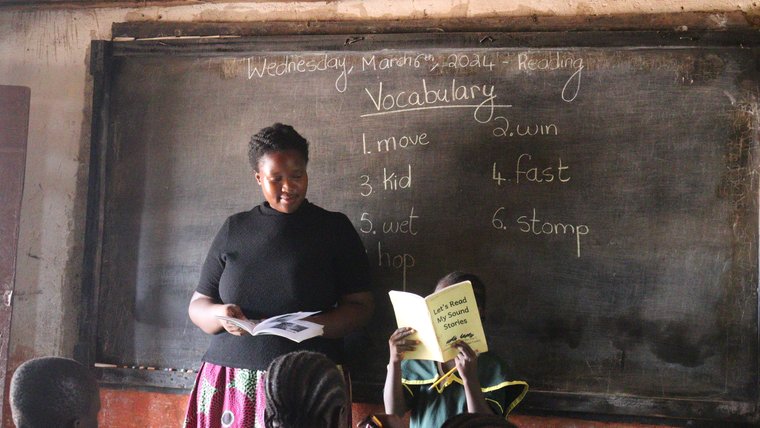 Wednesday, March 6th, 2024 - Reading
Vocabulary
1. move 2. win
3. kid 4. fast
5. wet 6. stomp
hop
Let's Read
My Sound
Stories